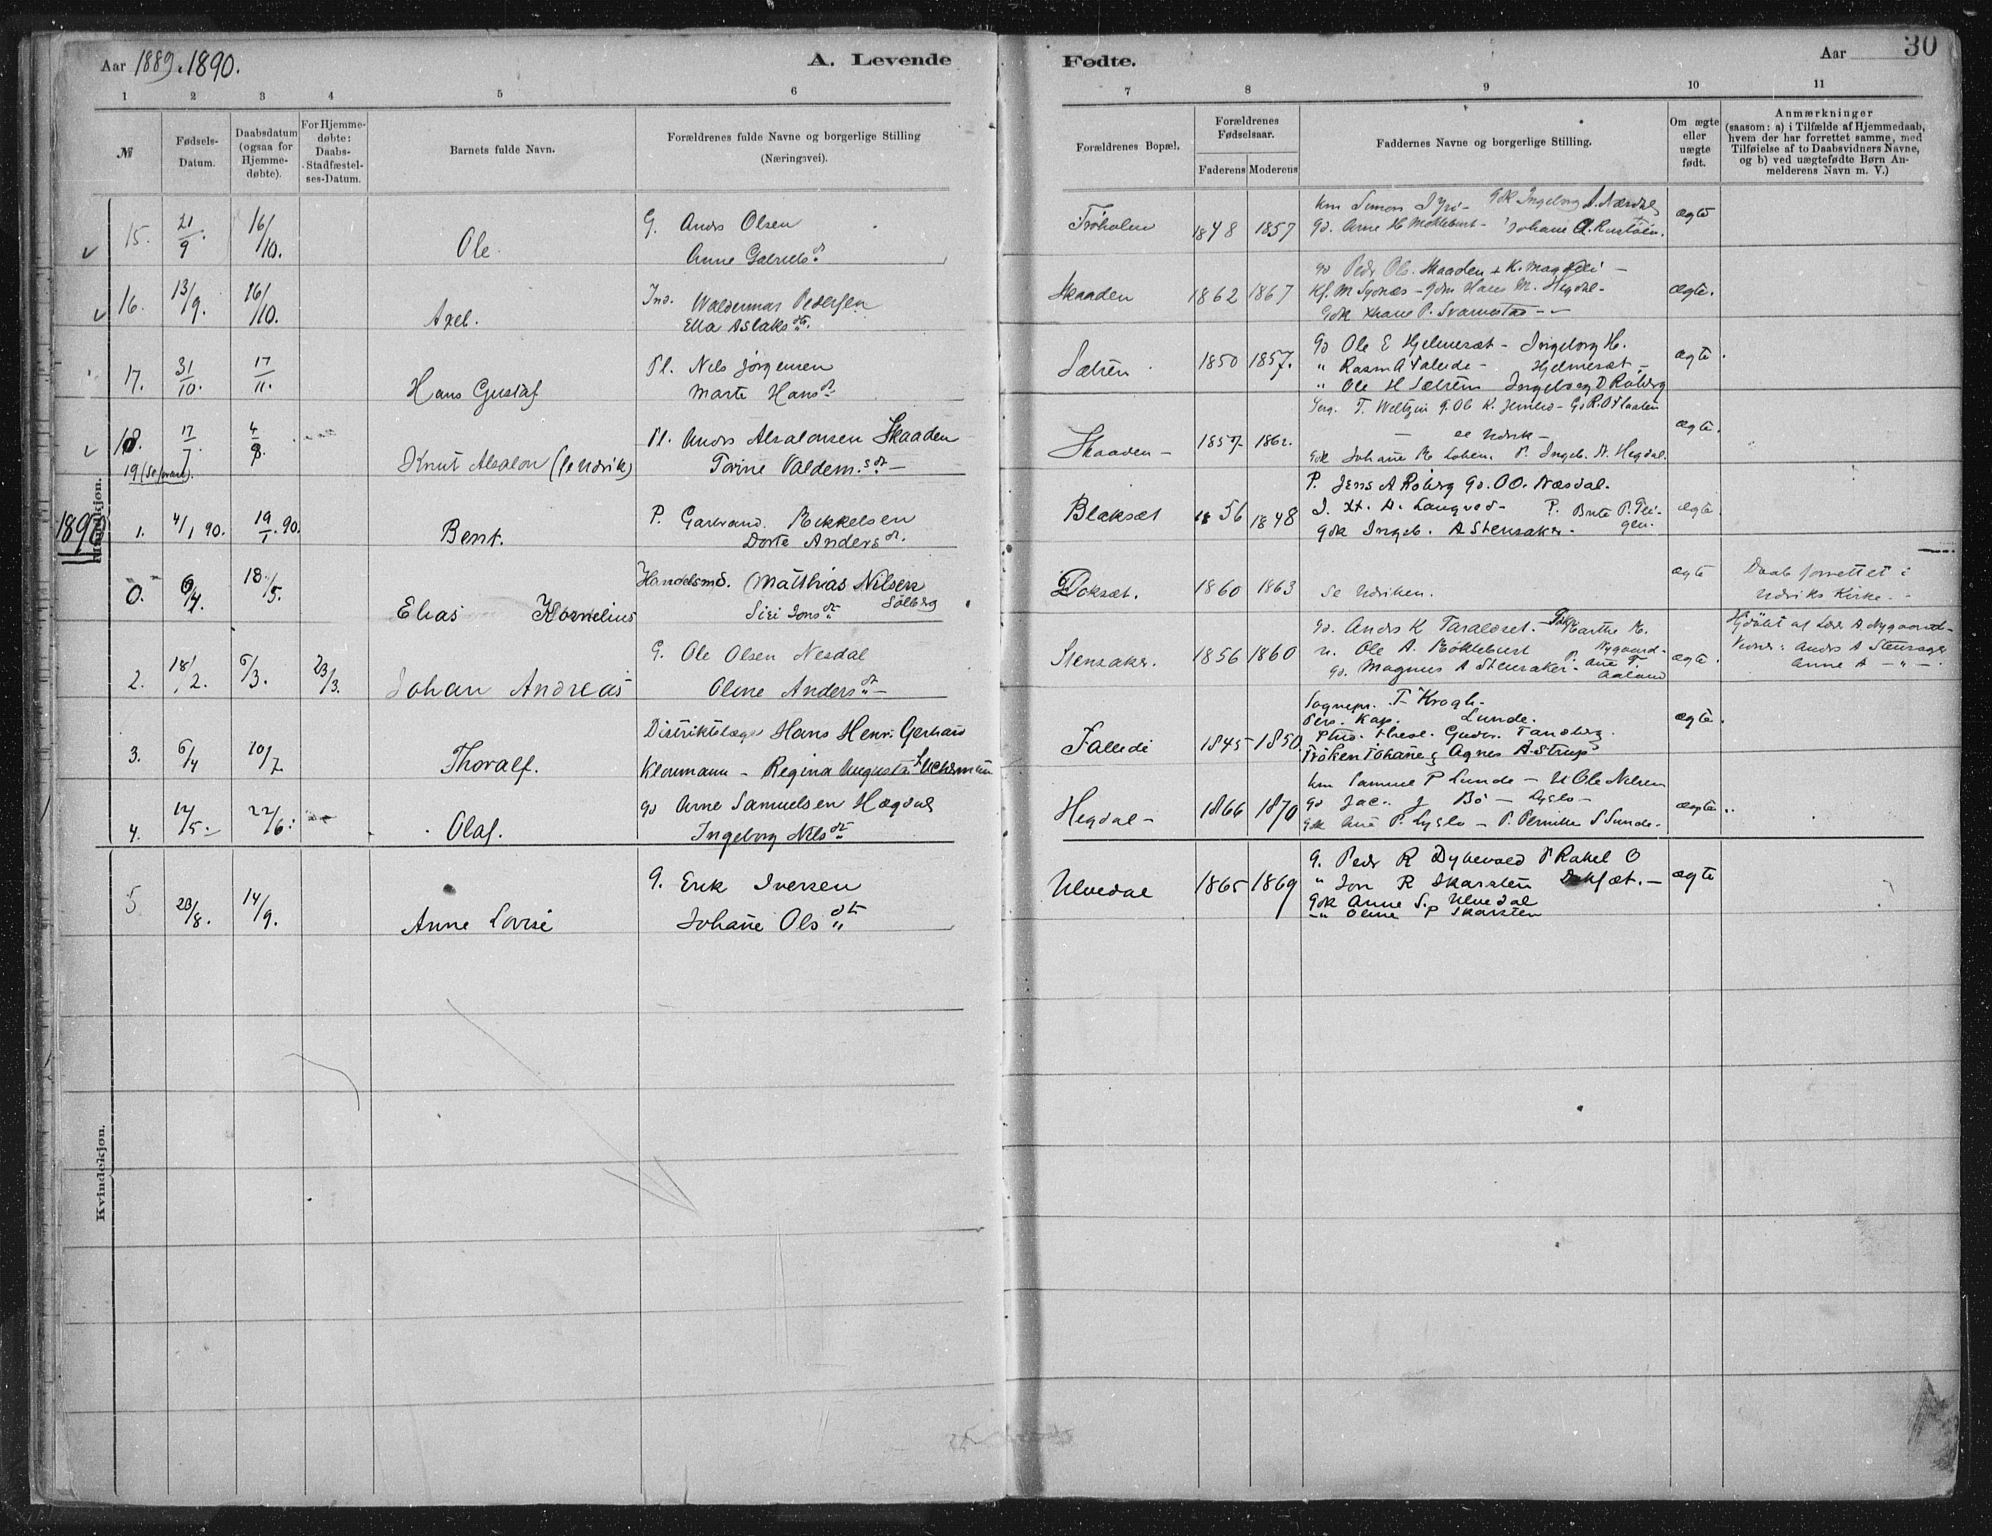 Aar 1889, 1890.
A. Levende
Fødte.
Aar
30
1 2 3 4 5 6 7 8 9 10 11
№
Fødsels-
Datum.
Daabsdatum
(ogsaa for
Hjemme-
døbte).
For Hjemme-
døbte:
Daabs-
Stadfæstel-
ses-Datum.
Barnets fulde Navn.
Forældrenes fulde Navne og borgerlige Stilling
(Næringsvei).
Forældrenes Bopæl.
Forældrenes
Fødselsaar.
Faderens Moderens
Faddernes Navne og borgerlige Stilling.
Om ægte
eller
uægte
født.
Anmærkninger
(saasom: a) i Tilfælde af Hjemmedaab,
hvem der har forrettet samme, med
Tilføielse af to Daabsvidners Navne,
og b) ved uægtefødte Børn An-
melderens Navn m. V.)
15. 21/9. 16/10. Ole
G. Anders Olsen
Anne Gabriels dt.
1848 1857
ægte
16. 13/9. 16/10. Axel.
Ind. Waldemar Pedersen
Ella Aslaks dt.
Skaaden 1862 1867
gd Peder Ol. Skaaden
ægte.
17. 31/10. 17/11. Hans Gustaf
Pl. Nils Jørgensen
Marte Hans dt
Sætren 1850 1857.
gd Ole E Hjelmesæt - Ingeborg H.
" Rasm A Faleide - Hjelmesæt -
" Ole H Sætrem Ingeborg D Roberg
ægte.
18. 17/7. 4/8. Knut Absalon (se Udvik)
Pl. Anders Absalonsen Skaaden
Torine Valdem.s dt -
Skaaden - 1857 1862.
se Udvik -
ægte.
19 (Se foran).
Mandkjøn.
1890
1. 4/1 90. 19/1. 90. Bent.
P. Garbrand Mikkelsen
Dorte Anders dt.
Blaksæt 1856 1848
P. Jens A Roberg Gd. O O. Næsdal.
gdk Ingeb. A Stensaker.
ægte.
0. 6/4. 18/5. Elias Kornelius
Handelsmd. Matthias Nilsen
Solberg
Siri Jons dt
Doksæt. 1860 1863
Se Udviken.
ægte
Daab forrettet i
Udviks Kirke.
2. 18/2. 6/3. 23/3. Johan Andreas
G. Ole Olsen Nesdal
Oline Anders dt -
Stensaker. 1856 1860
gd. Anders K Taraldset. Marthe M.
Nygaard
u. Ole A. Mokleburst P. Ane T.
gd. Magnus A Stensaker. Aaland
ægte.
Hjdøbt af Lær A Nygaard
Vidner: Anders A Stensager
Anne A - " -
3. 6/4 10/7 Thoralf.
Distriktslæge Hans Henr. Gerhard
Kloumann - Regina Augusta
Faleide 1845 1850
Sognepr. T Krogh.
Pers. Kap. Lunde.
Frøken Johanne & Agnes Astrup
ægte.
4. 12/5. 22/6. Olaf.
gd Arne Samuelsen Hægdal
Ingeborg Nils dt
Hegdal - 1866 1870
km Samuel P Lunde - U Ole Nilsen
gd Jac. J Bø - Lyslo -
gdk Ane P. Lyslo - P. Pernille S Lunde.
ægte.
5 23/8. 14/9. Anne Lovise
G. Erik Iversen
Johane Ols dt
Ulvedal 1865 1869
G. Peder R Dybevold P Rakel O
" Jon R Skarsten Doksæt. -
Gdk Anne S. Ulvedal
" Oline P Skarsten
ægte
Kvindekjøn.